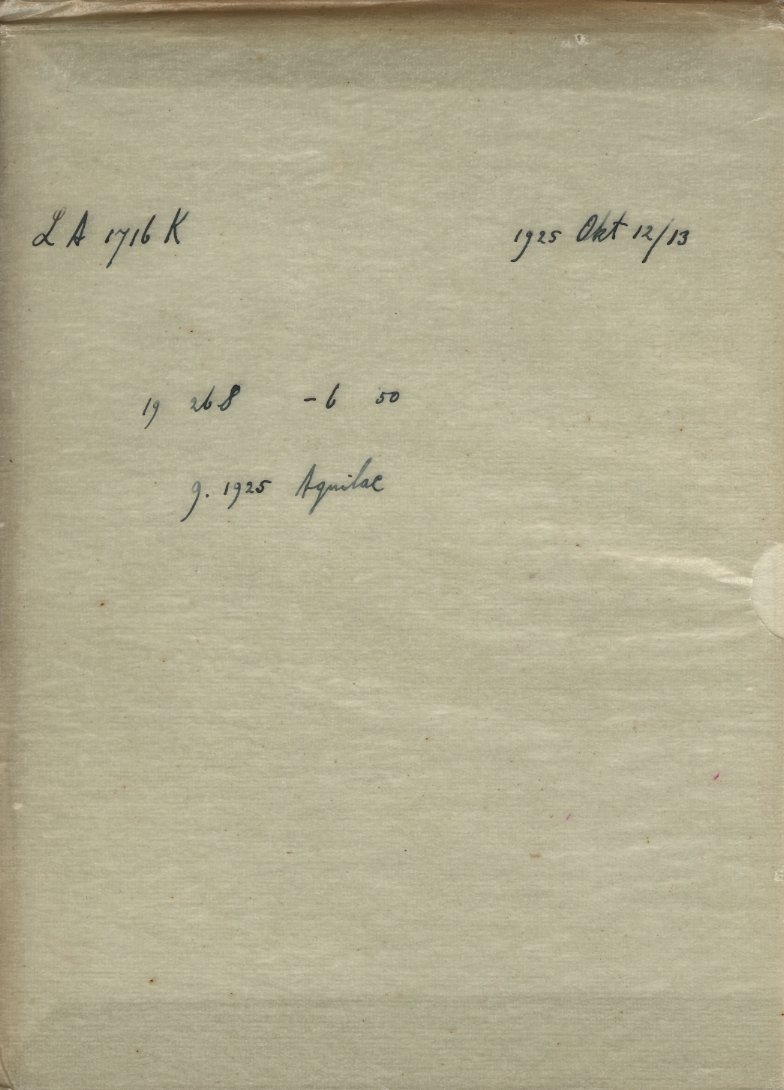 LA 1716 K 1925 Okt 12/13
19 268 -6 50
9. 1925 Aquilae